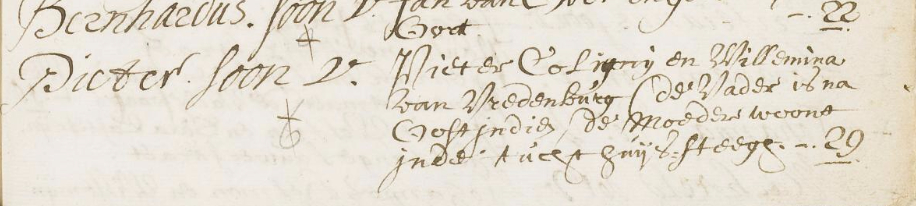 Bernhardus. soon v. Jan van -. 22
Goet
Pieter. soon v. Pieter Coligny en Willemina
van Vredenburg (de Vader is na
Oostjndien, de Moeder woont
jnde tuchthuijs-steegh. -. 29